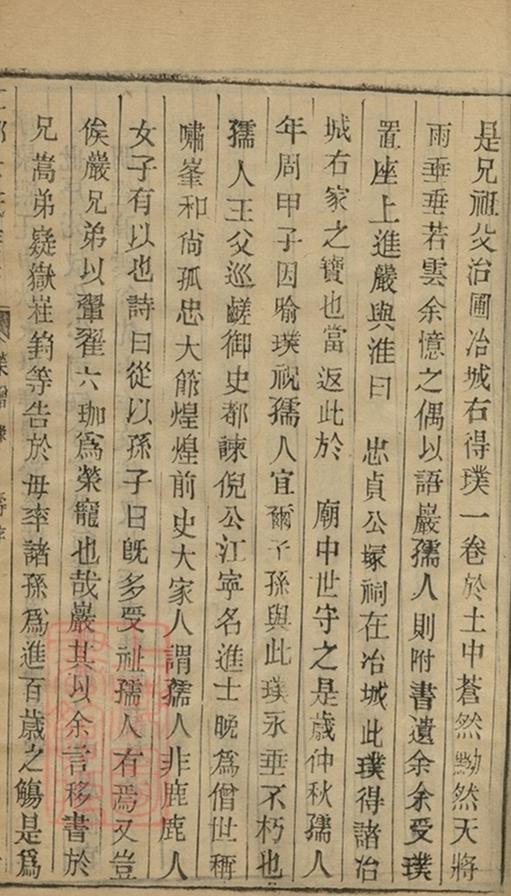 是兄祖父治圃冶城右得璞一卷於土中蒼然黝然天將
雨垂垂若雲余憶之偶以語嚴孺人則附書遺余余受璞
置座上進嚴與淮曰　忠貞公塚祠在冶城此璞得諸冶
城右家之寶也當返此於　廟中世守之是歲仲秋孺人
年周甲子因喻璞祝孺人宜爾子孫與此璞永垂不朽也
孺人王父巡鹺御史都諫倪公江寧名進士晚爲僧世稱
嘯峯和尙孤忠大節煌煌前史大家人謂孺人非鹿鹿人
女子有以也詩曰從以孫子曰旣多受祉孺人有焉又豈
俟嚴兄弟以翬翟六珈爲榮寵也哉嚴其以余言移書於
兄嵩弟嶷嶽崔鈞等告於母率諸孫爲進百歲之觴是爲